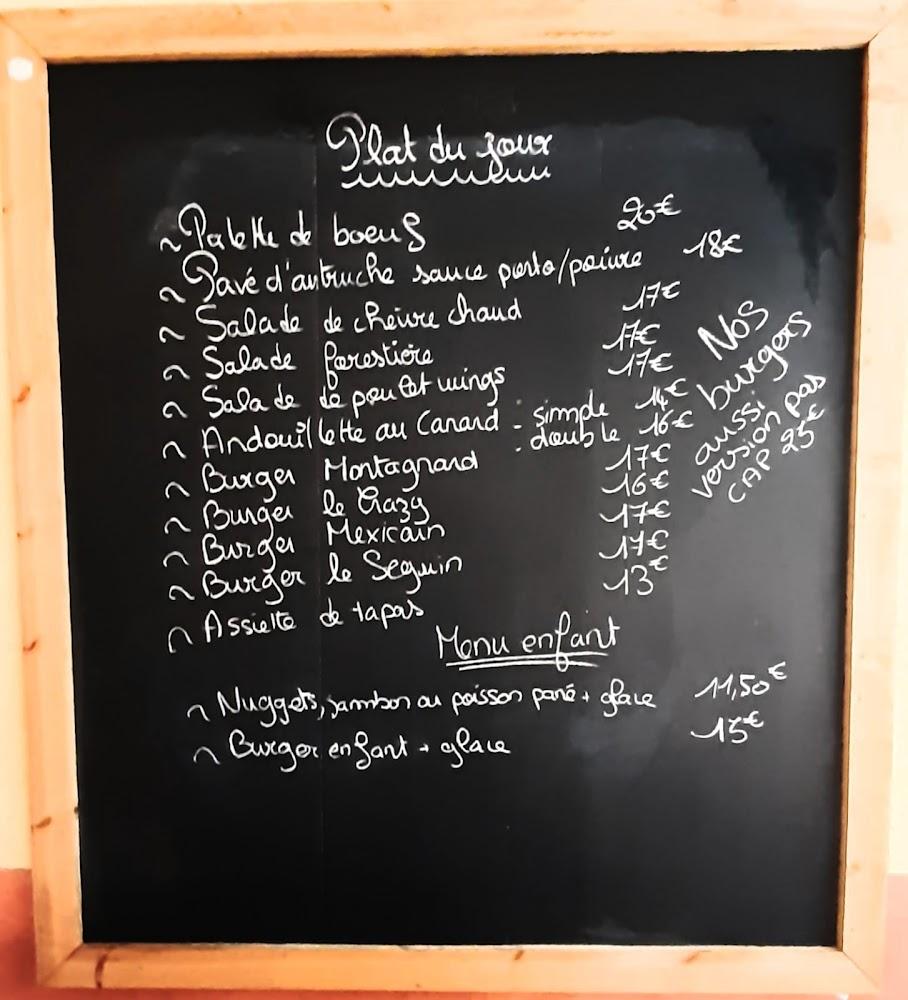 Plat du jour
~ Palette de boeuf 20€
~ Pavé d'autruche sauce porto/poivre 18€
~ Salade de chèvre chaud 17€
~ Salade forestière 17€
~ Salade de poulet wings 17€
~ Andouillette au Canard : simple 14€
: double 16€
~ Burger Montagnard 17€
~ Burger le Crazy 16€
~ Burger Mexicain 17€
~ Burger le Seguin 17€
~ Assiette de tapas 13€
Nos
burgers
aussi
version pas
CAP 25€
Menu enfant
~ Nuggets, jambon ou poisson pané + glace 11,50€
~ Burger enfant + glace 15€